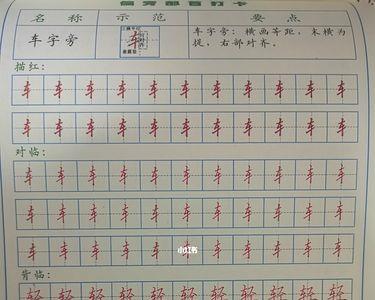 偏旁部首打卡
名称 示范 要点
车字旁 车 车字旁：横画等距，末横为
提，右部对齐。
描红：
车 车 车 车 车 车 车 车 车 车 车 车
车 车 车 车 车 车 车 车 车 车 车 车
对临：
车 车 车 车 车 车 车 车 车 车 车 车
车 车 车 车 车 车 车 车 车 车 车 车
车 车 车 车 车 车 车 车 车 车 车 车
小红书
背临：
轻 轻 轻 轻 轻 轻 轻 轻 轻 轻 轻 轻